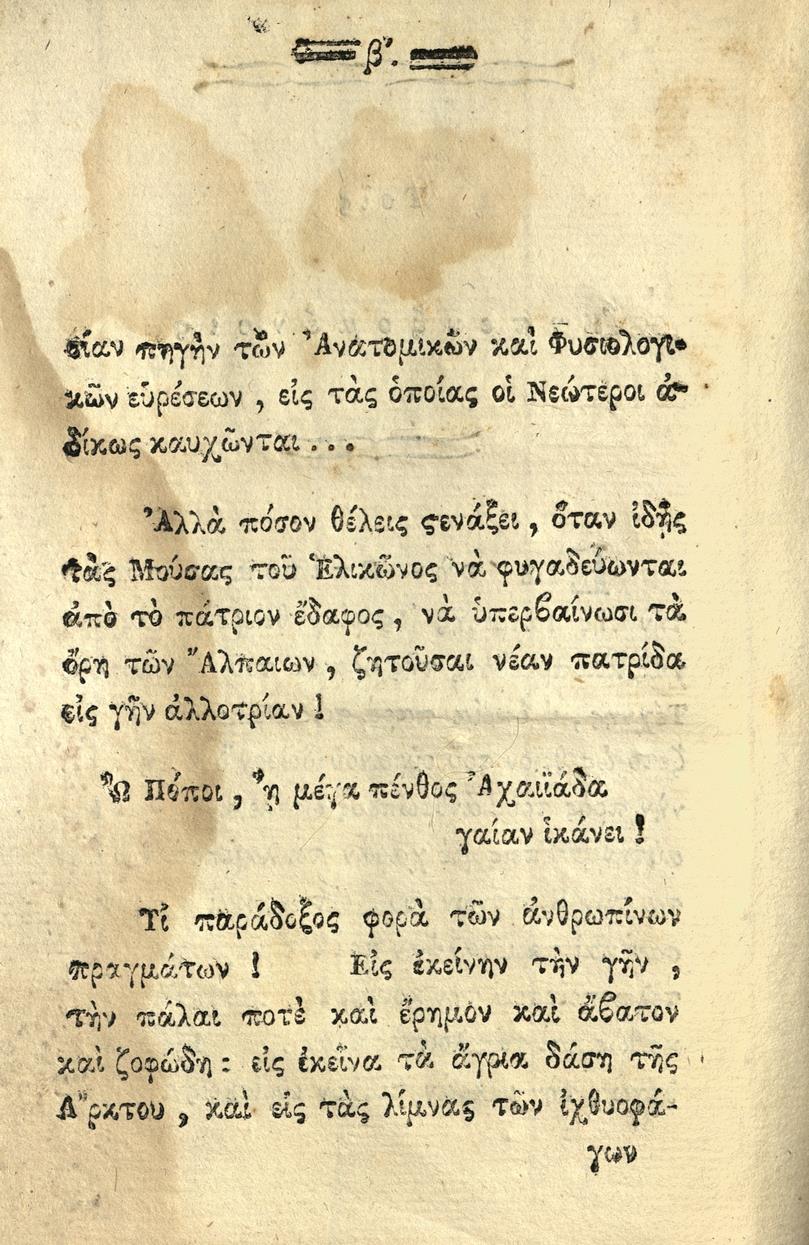 β'.
σίαν πηγὴν τῶν Ἀνατομικῶν καὶ Φυσιολογι-
κῶν εὑρέσεων , εἰς τὰς ὁποίας οἱ Νεώτεροι ἀ-
δίκως καυχῶνται . . .
Ἀλλὰ πόσον θέλεις ϛενάξει , ὅταν ἰδῇς
τὰς Μούσας τοῦ Ἑλικῶνος νὰ φυγαδεύωνται
ἀπὸ τὸ πάτριον ἔδαφος , νὰ ὑπερβαίνωσι τὰ
ὄρη τῶν Ἄλπαιων , ζητοῦσαι νέαν πατρίδα
εἰς γῆν ἀλλοτρίαν !
Ὢ Πόποι , ἦ μέγα πένθος Ἀχαιϊάδα
γαίαν ἱκάνει !
Τὶ παράδοξος φορὰ τῶν ἀνθρωπίνων
πραγμάτων ! Εἰς ἐκείνην τὴν γῆν ,
τὴν πάλαι ποτὲ καὶ ἔρημον καὶ ἄβατον
καὶ ζοφώδη : εἰς ἐκεῖνα τὰ ἄγρια δάση τῆς
Ἄρκτου , καὶ εἰς τὰς λίμνας τῶν ἰχθυοφά-
γων